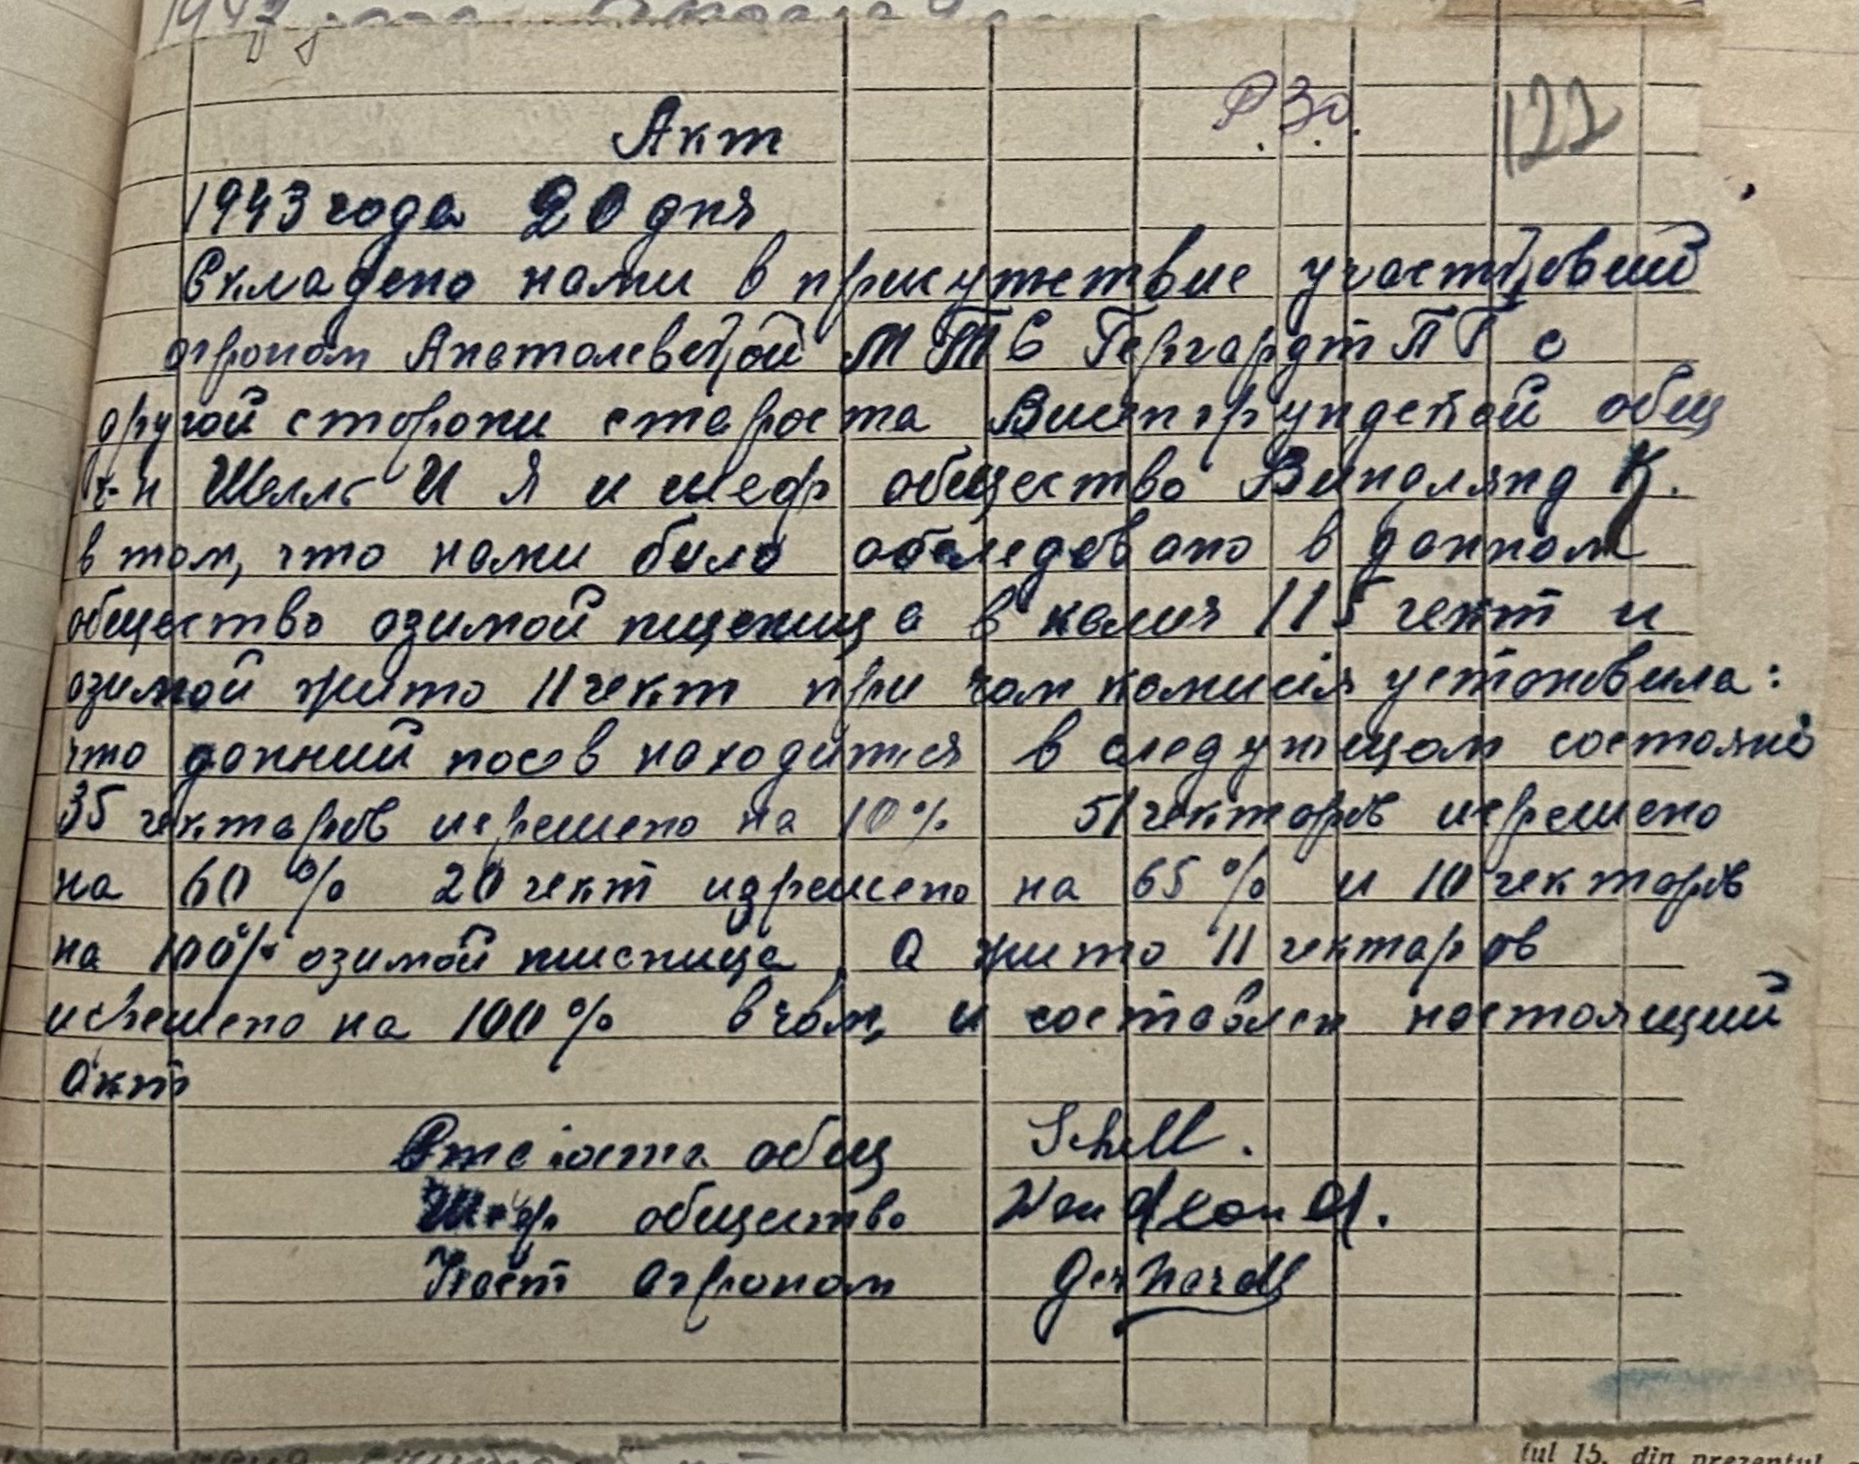 Р.З.О. 122
Акт
1943 года 20 дня
Складено нами в присутствие участковий
агроном Анатолевской МТС Гергардт П Г с
другой сторони староста Виннгрундской общ
г-н Шелль И Я и шеф общество Виндлянд К.
в том, что нами било обследовано в данном
общество озимой пшеница в колич 115 гект и
озимой жито 11 гект при чом комисія установила:
что данний посев находится в следующом состояно
35 гектаров изрешено на 10% 51 гектаров изрешено
на 60% 20 гект изрешено на 65% и 10 гектаров
на 100% озимой пшеница, а жито 11 гектаров
изрешено на 100% в чом, и составлен настоящий
акт
Староста общ Schell.
Шеф общество Wendland.
Участ агроном Gerhardt
tul 15. din prezentul